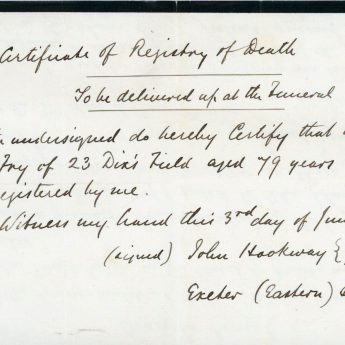 Certificate of Registry of Death
To be delivered up at the Funeral
undersigned do hereby Certify that
of 23 Dix's Field aged 79 years
registered by me.
Witness my hand this 3rd day of
(signed) John Hookway
Exeter (Eastern)